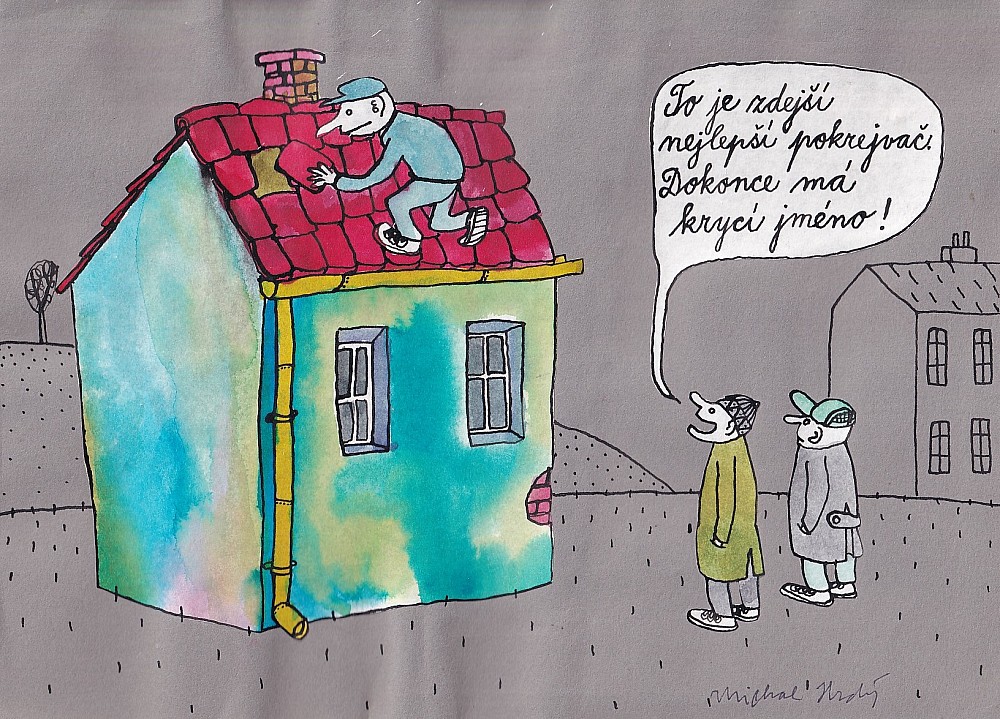 To je zdejší
nejlepší pokrejvač.
Dokonce má
krycí jméno!
Michal Hrdý